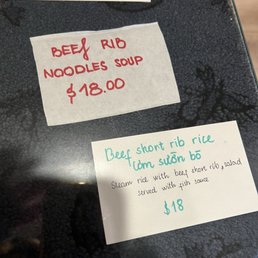 BEEf RIB
NOODLES SOUP
$18.00
Beef short rib rice
Cơm sườn bò
Steam rice with beef short rib, salad
served with fish sauce
$18